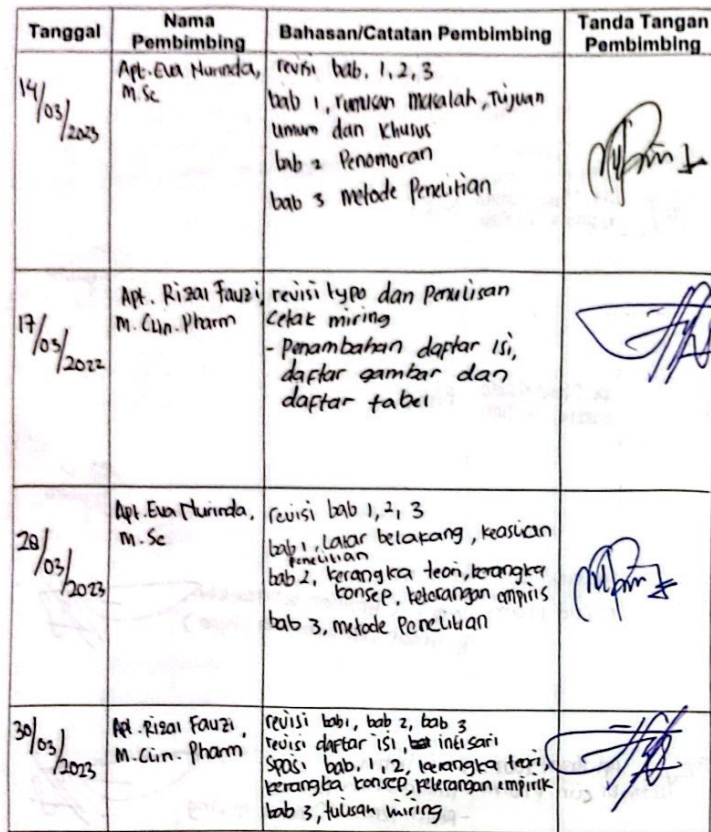 Tanggal
Nama
Pembimbing
Bahasan/Catatan Pembimbing
Tanda Tangan
Pembimbing
14/03/2023
Apt. Eva Nurinda,
M.Sc
revisi bab, 1, 2, 3
bab 1, rumusan masalah, Tujuan
umum dan Khusus
bab 2 Penomoran
bab 3 metode Penelitian
17/03/2022
Apt. Rizal Fauzi,
M. Clin. Pharm
revisi typo dan Penulisan
cetak miring
- Penambahan daftar isi,
daftar gambar dan
daftar tabel
28/03/2023
Apt. Eva Nurinda,
M. Sc
revisi bab 1, 2, 3
bab 1, Latar belakang, keaslian
penelitian
bab 2, kerangka teori, kerangka
konsep, keterangan empiris
bab 3, metode Penelitian
30/03/2023
Apt. Rizal Fauzi,
M. Clin. Pharm
revisi bab 1, bab 2, bab 3
revisi daftar isi, intisari
spasi bab, 1, 2, kerangka teori,
kerangka konsep, keterangan empirik
bab 3, tulisan miring